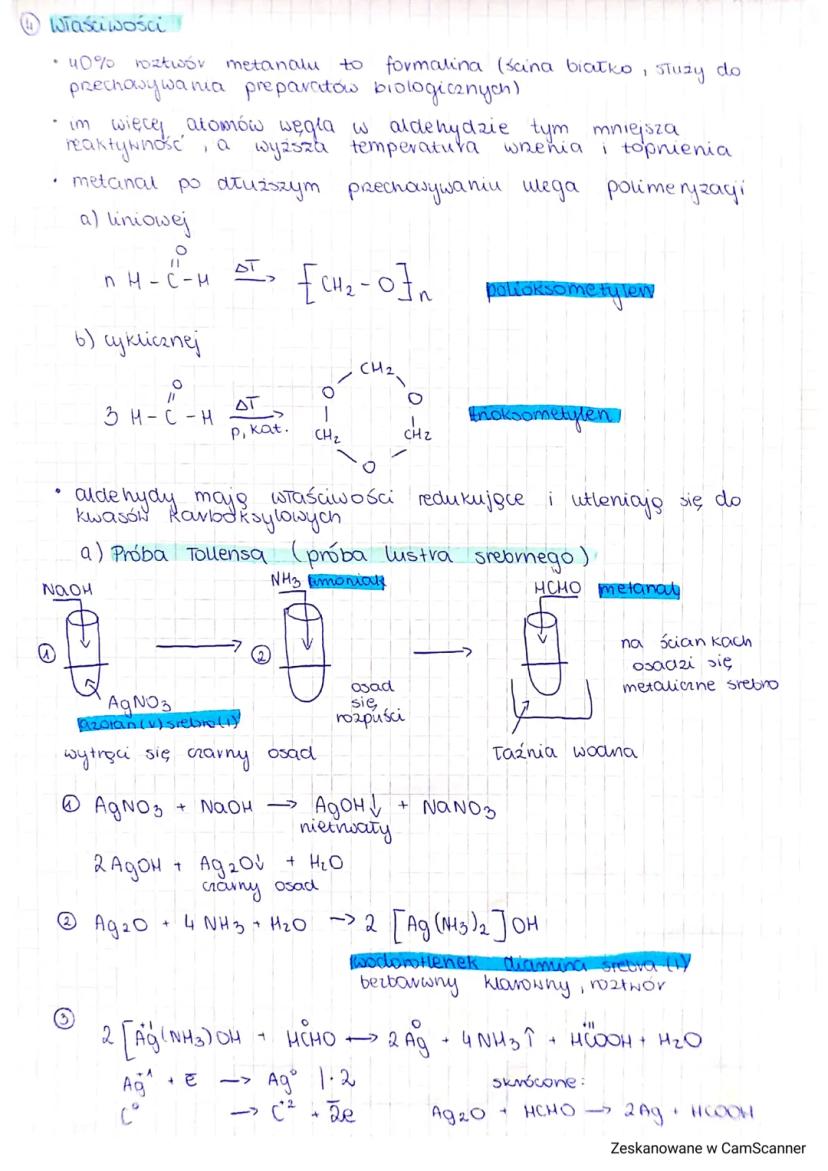 4 Właściwości
• 40% roztwór metanalu to formalina (ścina białko, służy do
przechowywania preparatów biologicznych)
• im więcej atomów węgla w aldehydzie tym mniejsza
reaktywność, a wyższa temperatura wrzenia i topnienia
• metanal po dłuższym przechowywaniu ulega polimeryzacji
a) liniowej
O
||
n H-C-H ΔT → [CH2-O]n polioksometylen
b) cyklicznej
CH2
O
||
3 H-C-H ΔT → O O trioksometylen
p, kat. CH2 CH2
O
• aldehydy mają właściwości redukujące i utleniają się do
kwasów karboksylowych
a) Próba Tollensa (próba lustra srebrnego)
NaOH NH3 amoniak HCHO metanal
1 → 2 →
na ściankach
osadzi się
metaliczne srebro
AgNO3
azotan(V) srebra(I)
osad
się
rozpuści
wytrąci się czarny osad
łaźnia wodna
1 AgNO3 + NaOH → AgOH↓ + NaNO3
nietrwały
2AgOH + Ag2O↓ + H2O
czarny osad
2 Ag2O + 4 NH3 + H2O → 2 [Ag(NH3)2]OH
wodorotlenek diamina srebra (I)
bezbarwny klarowny, roztwór
3
2[Ag(NH3)OH + HCHO → 2Ag + 4NH3↑ + HCOOH + H2O
+I 0 0 +II
Ag+1 + e → Ag0 |·2
skrócone:
C0 → C+2 + 2e
Ag2O + HCHO → 2Ag + HCOOH
Zeskanowane w CamScanner